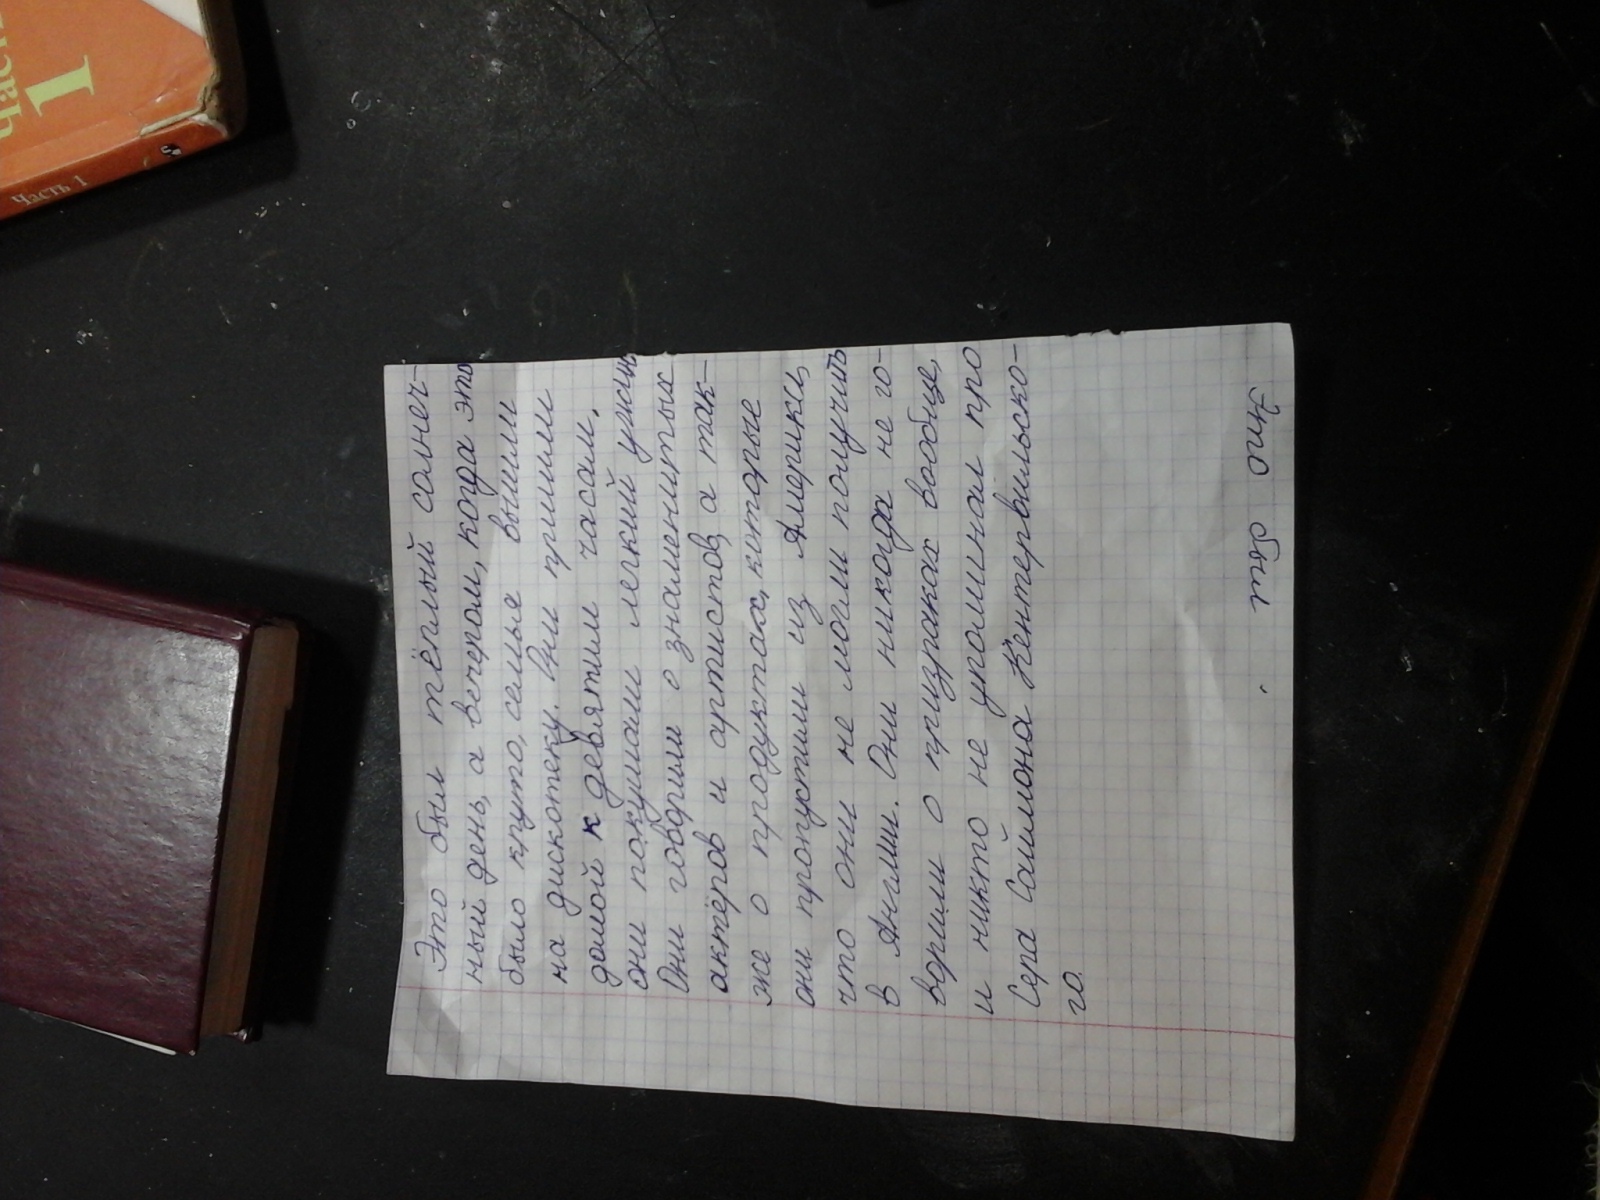 Часть
1
Часть 1
Это был тёплый солнеч-
ный день, а вечером, когда это
было круто, семья вышли
на дискотеку. Они пришли
домой к девятим часам,
они покушали легкий ужинь
Они говорили о знаменитых
актёров и артистов, а так-
же о продуктах, которые
они пропустили из Америки,
что они не могли получить
в Англии. Они никогда не го-
ворили о призраках вообще,
и никто не упоминал про
Сера Саймона Кентервильско-
го.
Это был